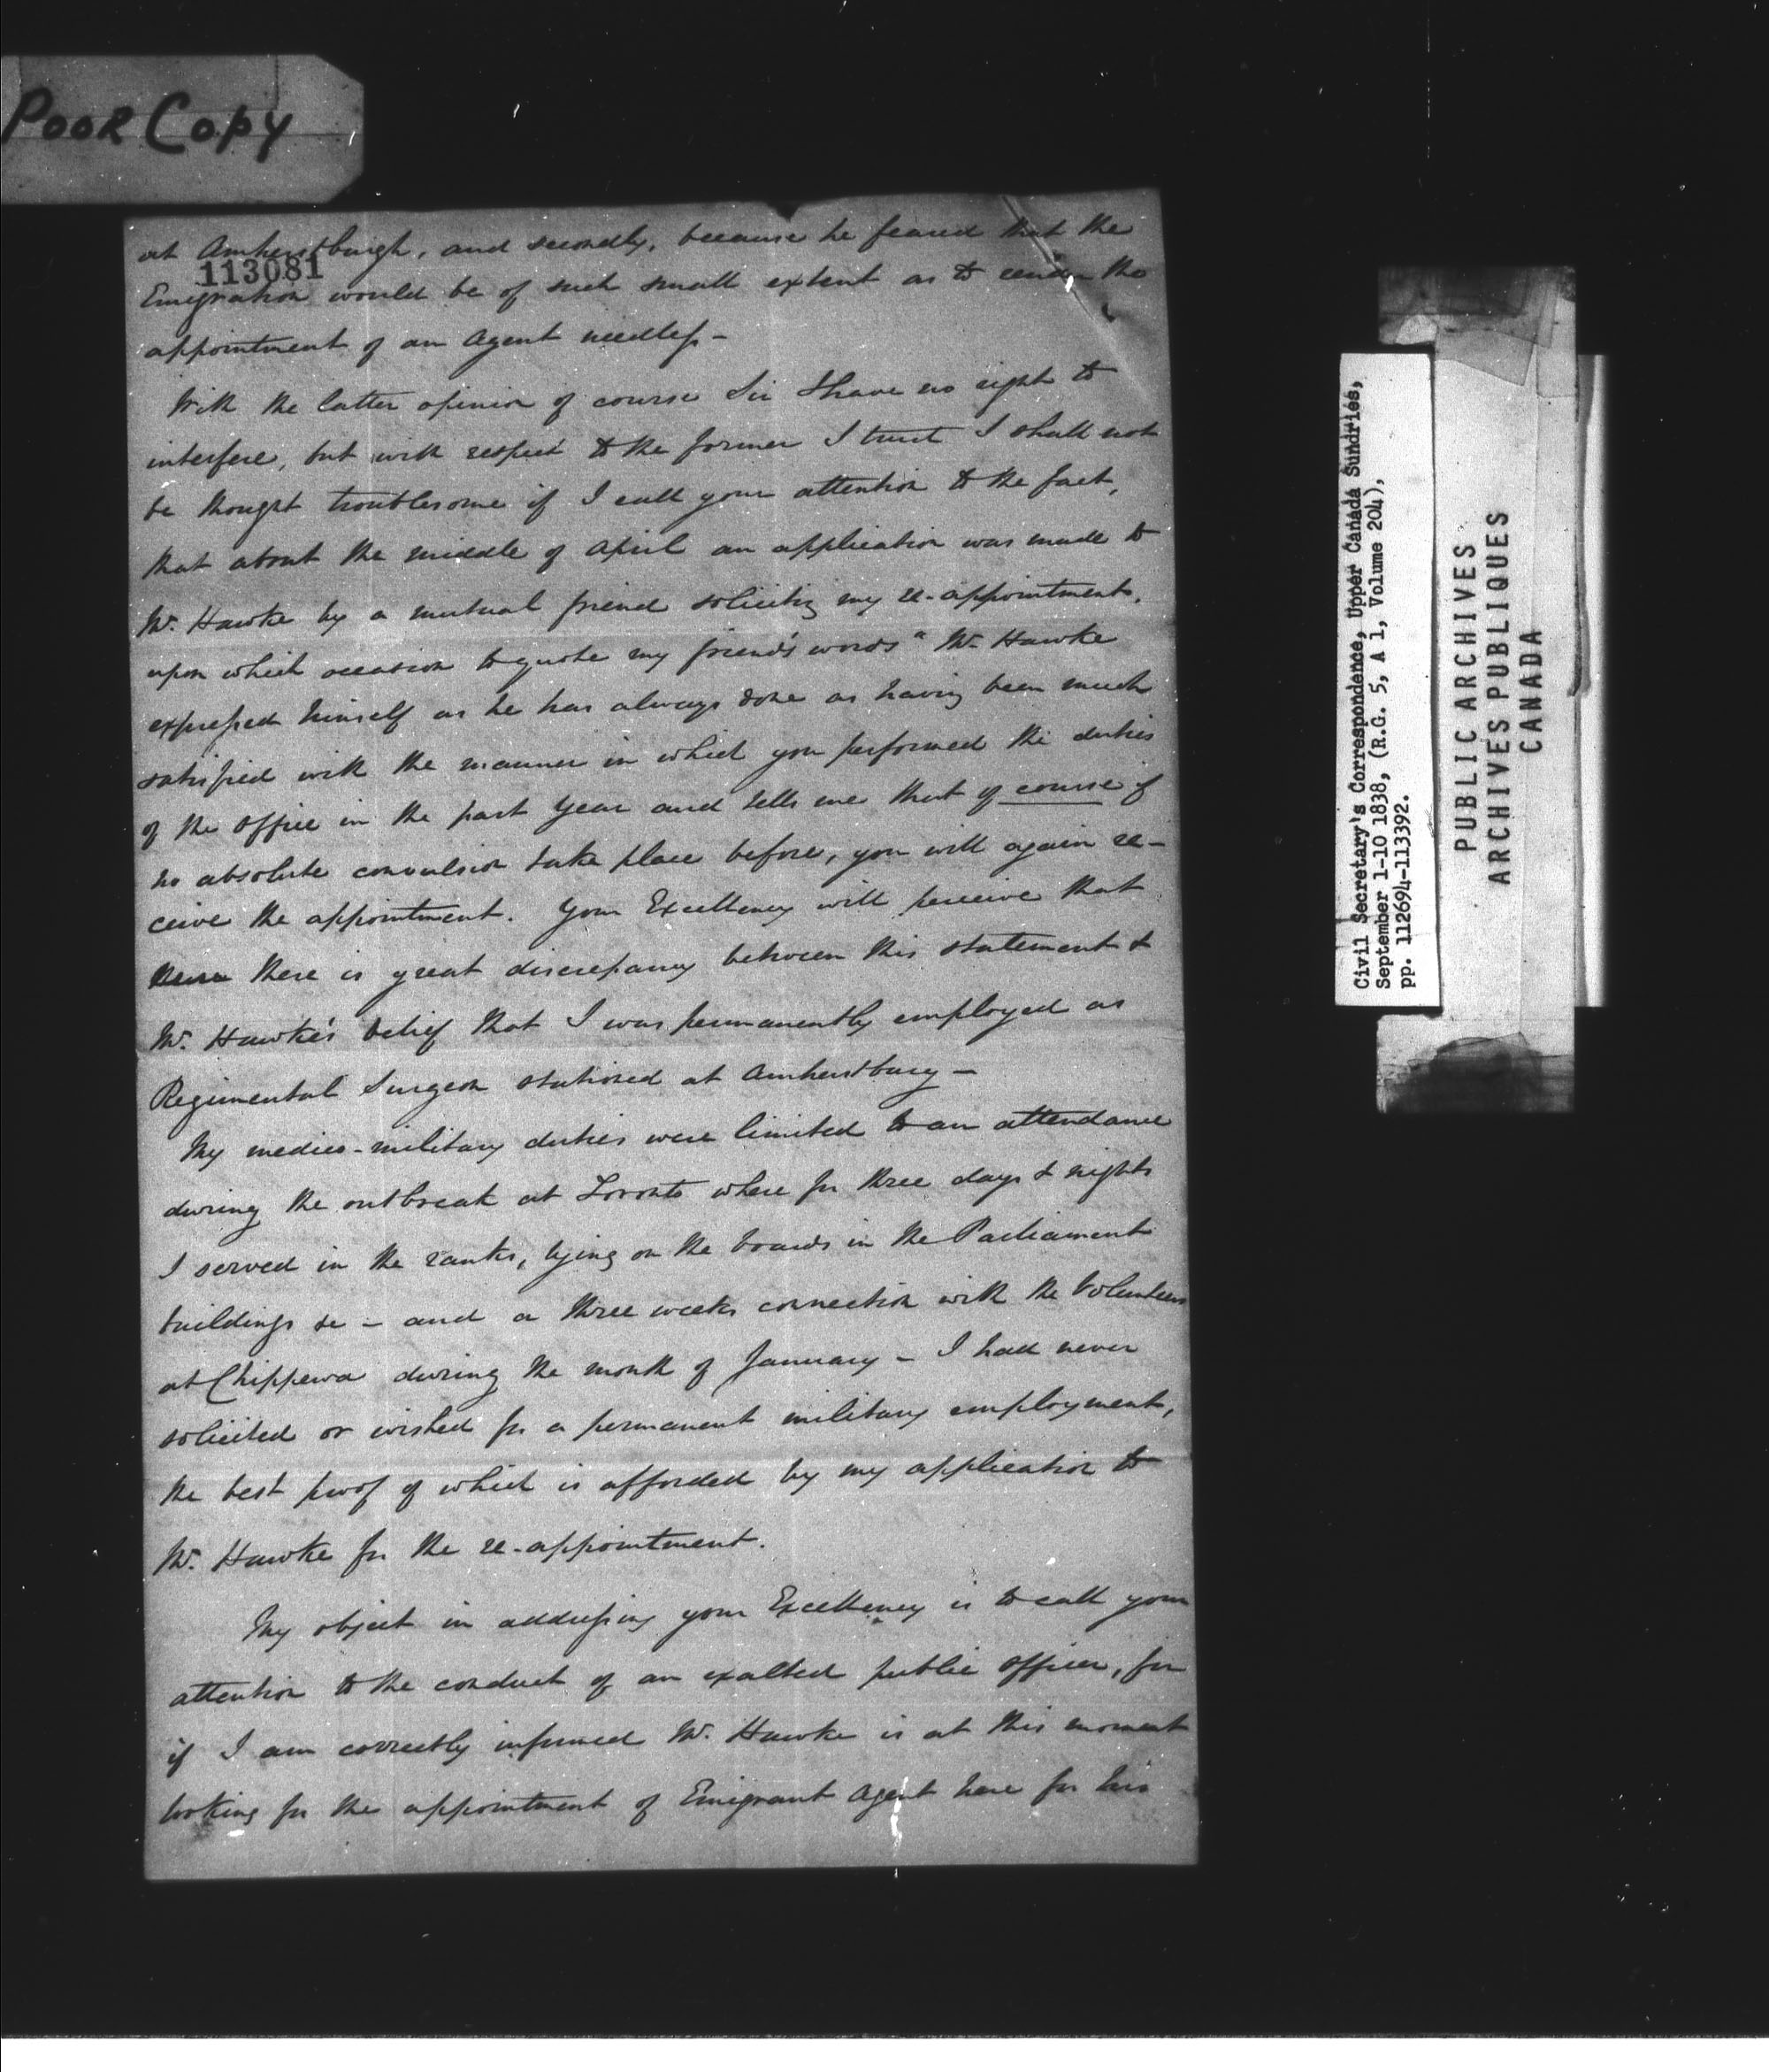 Poor Copy
at Amherstburgh, and secondly, because he feared that the
113081
Emigration would be of such small extent as to render the
appointment of an Agent needless -
With the latter opinion of course Sir I have no right to
interfere, but with respect to the former I trust I shall not
be thought troublesome if I call your attention to the fact,
that about the middle of April an application was made to
Mr. Hawke by a mutual friend soliciting my re-appointment,
upon which occasion to quote my friend's words "Mr. Hawke
expressed himself as he has always done as having been much
satisfied with the manner in which you performed the duties
of the office in the past Year and tells me that of course if
no absolute convulsion take place before, you will again re-
ceive the appointment. Your Excellency will perceive that
there is great discrepancy between this statement &
Mr. Hawke's belief that I was permanently employed as
Regimental Surgeon stationed at Amherstburg -
My medico-military duties were limited to an attendance
during the outbreak at Toronto where for three days & nights
I served in the ranks, lying on the boards in the Parliament
buildings &c - and a three weeks connection with the Volunteers
at Chippewa during the month of January - I had never
solicited or wished for a permanent military employment,
the best proof of which is afforded by my application to
Mr. Hawke for the re-appointment.
My object in addressing your Excellency is to call your
attention to the conduct of an exalted public officer, for
if I am correctly informed Mr. Hawke is at this moment
looking for the appointment of Emigrant Agent here for his
Civil Secretary's Correspondence, Upper Canada Sundries,
September 1-10 1838, (R.G. 5, A 1, Volume 204),
pp. 112694-113392.
PUBLIC ARCHIVES
ARCHIVES PUBLIQUES
CANADA